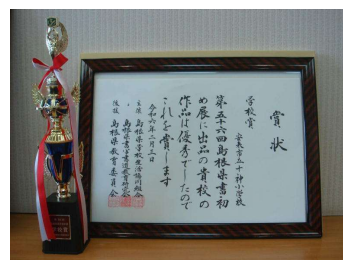 賞状
学校賞 安来市立十神小学校
第五十六回島根県書初
め展に出品の貴校の
作品は優秀でしたので
これを賞します
令和六年二月三日
主催 島根県学校生活協同組合
島根県書写書道教育研究会
後援 島根県教育委員会